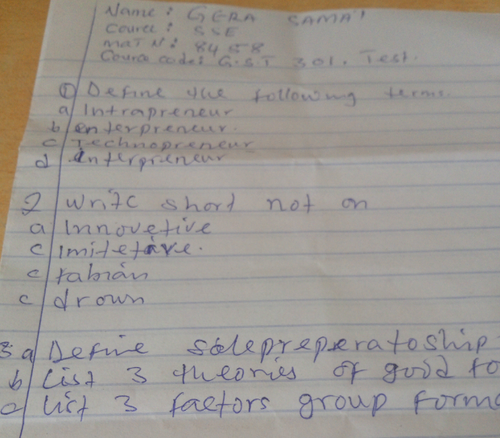 Name: GERA SAMA'
Cource: SSE
mat N: 8458
Coura code: G.S.T 301. Test.
① Define the following terms.
a Intrapreneur
b enterpreneur.
c Technopreneur
d interpreneur
2 write short not on
a Innovetive
c imitetive.
c fabian
c drown
3 a Define solepreperatoship
b List 3 theories of good fo
c List 3 factors group forma